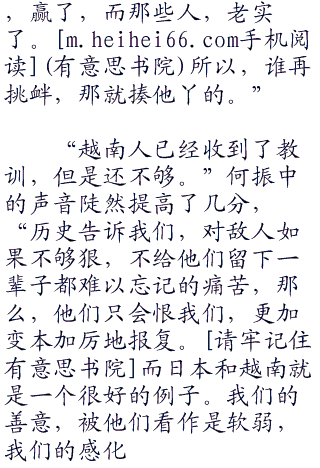 ，赢了，而那些人，老实
了。[m.heihei66.com手机阅
读](有意思书院)所以，谁再
挑衅，那就揍他丫的。”
“越南人已经收到了教
训，但是还不够。”何振中
的声音陡然提高了几分，
“历史告诉我们，对敌人如
果不够狠，不给他们留下一
辈子都难以忘记的痛苦，那
么，他们只会恨我们，更加
变本加厉地报复。[请牢记住
有意思书院]而日本和越南就
是一个很好的例子。我们的
善意，被他们看作是软弱，
我们的感化